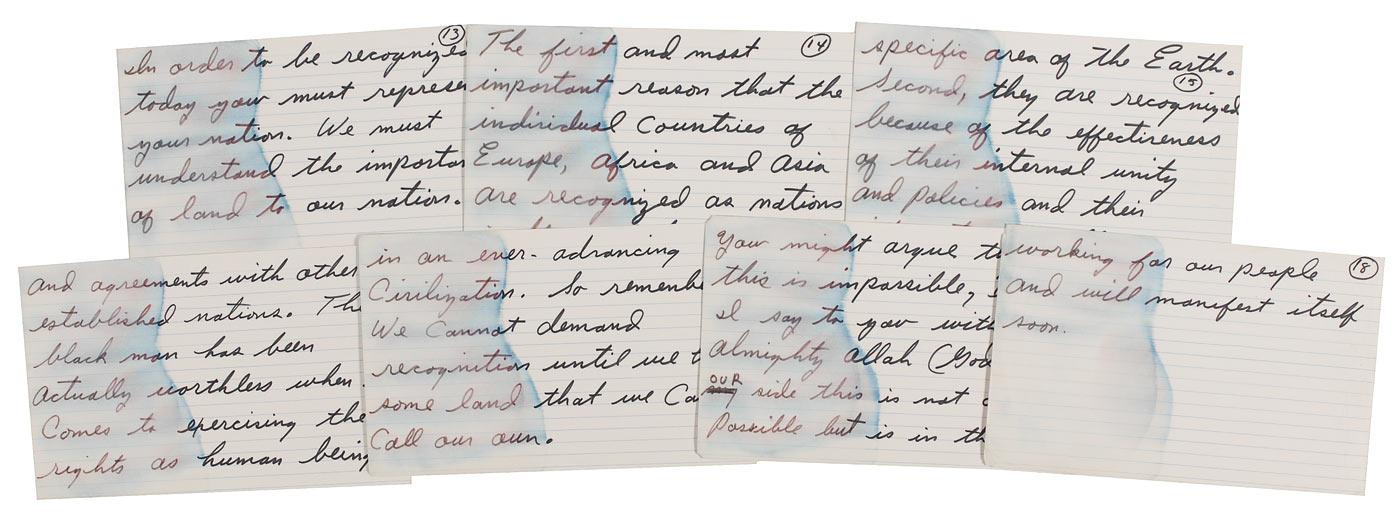 13
In order to be recognized
today you must represe
your nation. We must
understand the importa
of land to our nation.
14
The first and most
important reason that the
individual Countries of
Europe, Africa and Asia
are recognized as nations
specific area of the Earth.
15
Second, they are recognized
because of the effectiveness
of their internal unity
and policies and their
and agreements with other
established nations. The
black man has been
actually worthless when
Comes to exercising the
rights as human being
in an ever-advancing
Civilization. So remembe
We Cannot demand
recognition until we
some land that we Ca
Call our own.
You might argue
this is impossible,
I say to you with
Almighty Allah (God
OUR
side this is not
Possible but is in th
18
working for our people
and will manifest itself
soon.